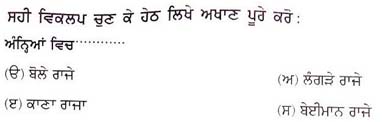 ਸਹੀ ਵਿਕਲਪ ਚੁਣ ਕੇ ਹੇਠ ਲਿਖੇ ਅਖਾਣ ਪੂਰੇ ਕਰੋ :
ਅੰਨ੍ਹਿਆਂ ਵਿਚ............
(ੳ) ਬੋਲੇ ਰਾਜੇ (ਅ) ਲੰਗੜੇ ਰਾਜੇ
(ੲ) ਕਾਣਾ ਰਾਜਾ (ਸ) ਬੇਈਮਾਨ ਰਾਜੇ